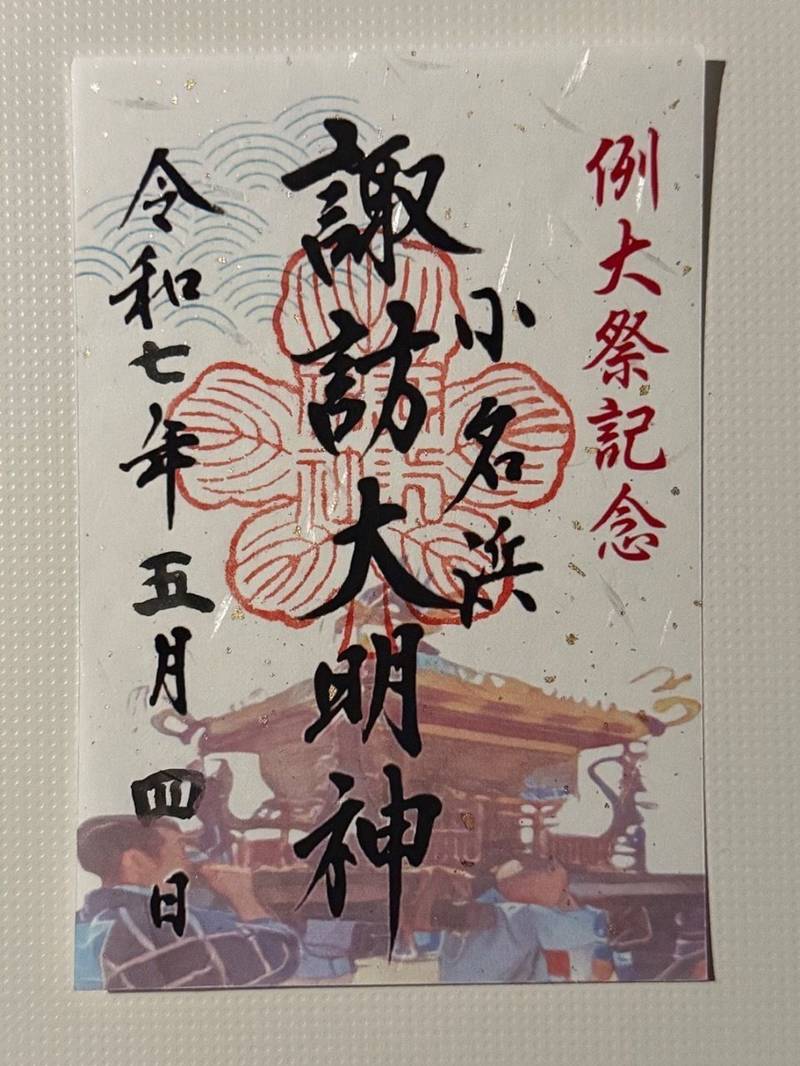 例大祭記念
小名浜
諏訪大明神
令和七年五月四日